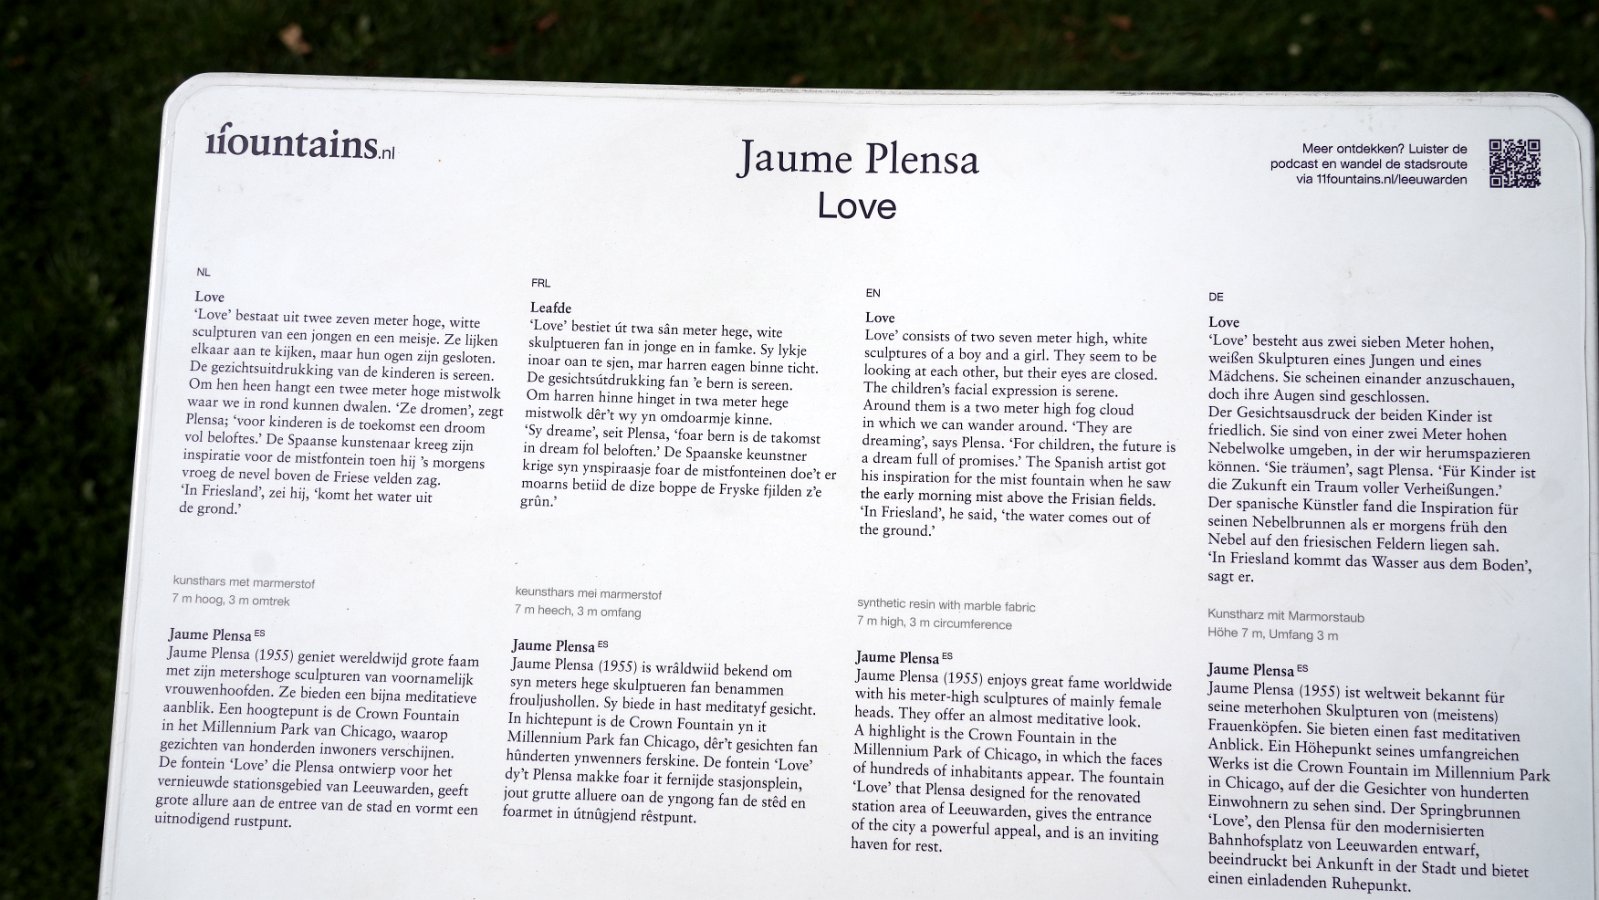 11fountains.nl
Jaume Plensa
Love
Meer ontdekken? Luister de
podcast en wandel de stadsroute
via 11fountains.nl/leeuwarden
NL
Love
‘Love’ bestaat uit twee zeven meter hoge, witte
sculpturen van een jongen en een meisje. Ze lijken
elkaar aan te kijken, maar hun ogen zijn gesloten.
De gezichtsuitdrukking van de kinderen is sereen.
Om hen heen hangt een twee meter hoge mistwolk
waar we in rond kunnen dwalen. ‘Ze dromen’, zegt
Plensa; ‘voor kinderen is de toekomst een droom
vol beloftes.’ De Spaanse kunstenaar kreeg zijn
inspiratie voor de mistfontein toen hij ’s morgens
vroeg de nevel boven de Friese velden zag.
‘In Friesland’, zei hij, ‘komt het water uit
de grond.’
kunsthars met marmerstof
7 m hoog, 3 m omtrek
Jaume Plensa ES
Jaume Plensa (1955) geniet wereldwijd grote faam
met zijn metershoge sculpturen van voornamelijk
vrouwenhoofden. Ze bieden een bijna meditatieve
aanblik. Een hoogtepunt is de Crown Fountain
in het Millennium Park van Chicago, waarop
gezichten van honderden inwoners verschijnen.
De fontein ‘Love’ die Plensa ontwierp voor het
vernieuwde stationsgebied van Leeuwarden, geeft
grote allure aan de entree van de stad en vormt een
uitnodigend rustpunt.
FRL
Leafde
‘Love’ bestiet út twa sân meter hege, wite
skulptueren fan in jonge en in famke. Sy lykje
inoar oan te sjen, mar harren eagen binne ticht.
De gesichtsútdrukking fan ’e bern is sereen.
Om harren hinne hinget in twa meter hege
mistwolk dêr’t wy yn omdoarmje kinne.
‘Sy dreame’, seit Plensa, ‘foar bern is de takomst
in dream fol beloften.’ De Spaanske keunstner
krige syn ynspiraasje foar de mistfonteinen doe’t er
moarns betiid de dize boppe de Fryske fjilden z’e
grûn.’
keunsthars mei marmerstof
7 m heech, 3 m omfang
Jaume Plensa ES
Jaume Plensa (1955) is wrâldwiid bekend om
syn meters hege skulptueren fan benammen
frouljushollen. Sy biede in hast meditatyf gesicht.
In hichtepunt is de Crown Fountain yn it
Millennium Park fan Chicago, dêr’t gesichten fan
hûnderten ynwenners ferskine. De fontein ‘Love’
dy’t Plensa makke foar it fernijde stasjonsplein,
jout grutte alluere oan de yngong fan de stêd en
foarmet in útnûgjend rêstpunt.
EN
Love
Love’ consists of two seven meter high, white
sculptures of a boy and a girl. They seem to be
looking at each other, but their eyes are closed.
The children’s facial expression is serene.
Around them is a two meter high fog cloud
in which we can wander around. ‘They are
dreaming’, says Plensa. ‘For children, the future is
a dream full of promises.’ The Spanish artist got
his inspiration for the mist fountain when he saw
the early morning mist above the Frisian fields.
‘In Friesland’, he said, ‘the water comes out of
the ground.’
synthetic resin with marble fabric
7 m high, 3 m circumference
Jaume Plensa ES
Jaume Plensa (1955) enjoys great fame worldwide
with his meter-high sculptures of mainly female
heads. They offer an almost meditative look.
A highlight is the Crown Fountain in the
Millennium Park of Chicago, in which the faces
of hundreds of inhabitants appear. The fountain
‘Love’ that Plensa designed for the renovated
station area of Leeuwarden, gives the entrance
of the city a powerful appeal, and is an inviting
haven for rest.
DE
Love
‘Love’ besteht aus zwei sieben Meter hohen,
weißen Skulpturen eines Jungen und eines
Mädchens. Sie scheinen einander anzuschauen,
doch ihre Augen sind geschlossen.
Der Gesichtsausdruck der beiden Kinder ist
friedlich. Sie sind von einer zwei Meter hohen
Nebelwolke umgeben, in der wir herumspazieren
können. ‘Sie träumen’, sagt Plensa. ‘Für Kinder ist
die Zukunft ein Traum voller Verheißungen.’
Der spanische Künstler fand die Inspiration für
seinen Nebelbrunnen als er morgens früh den
Nebel auf den friesischen Feldern liegen sah.
‘In Friesland kommt das Wasser aus dem Boden’,
sagt er.
Kunstharz mit Marmorstaub
Höhe 7 m, Umfang 3 m
Jaume Plensa ES
Jaume Plensa (1955) ist weltweit bekannt für
seine meterhohen Skulpturen von (meistens)
Frauenköpfen. Sie bieten einen fast meditativen
Anblick. Ein Höhepunkt seines umfangreichen
Werks ist die Crown Fountain im Millennium Park
in Chicago, auf der die Gesichter von hunderten
Einwohnern zu sehen sind. Der Springbrunnen
‘Love’, den Plensa für den modernisierten
Bahnhofsplatz von Leeuwarden entwarf,
beeindruckt bei Ankunft in der Stadt und bietet
einen einladenden Ruhepunkt.